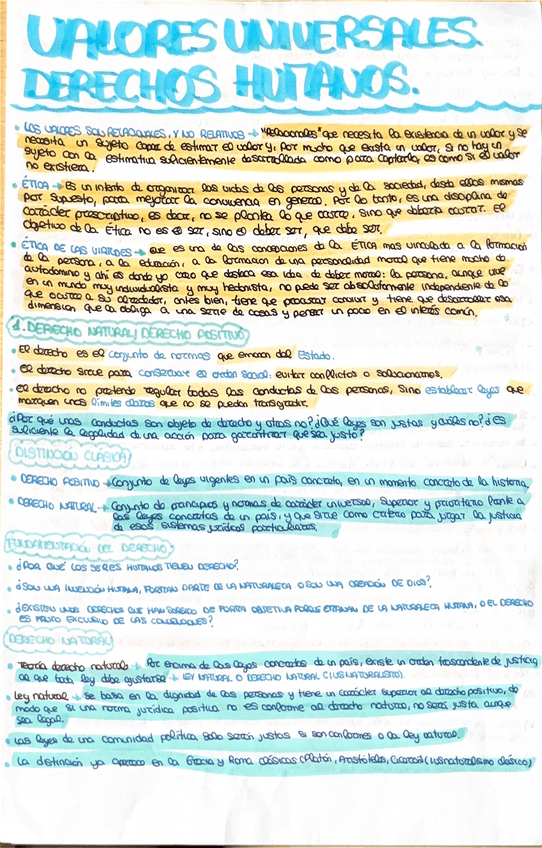 VALORES UNIVERSALES.
DERECHOS HUMANOS.
• LOS VALORES SON RELACIONALES, Y NO RELATIVOS → "Relacionales" que necesita la existencia de un valor y se
necesita un sujeto capaz de estimar el valor y; por mucho que exista un valor, si no hay un
sujeto con la estimativa suficientemente desarrollada como para captarla, es como si el valor
no existiera.
• ÉTICA → Es un intento de organizar las vidas de las personas y de la sociedad, desde ellas mismas
por supuesto, para mejorar la convivencia en general. Por lo tanto, es una disciplina de
carácter prescriptivo, es decir, no se plantea lo que ocurre, sino que debería ocurrir. El
objetivo de la Ética no es el ser, sino el deber ser, que debo ser.
• ÉTICA DE LAS VIRTUDES → que es una de las concepciones de la ÉTICA más vinculada a la formación
de la persona, a la educación, a la formación de una personalidad moral que tiene mucho de
autodominio y ahí es donde yo creo que destaca esa idea de deber moral: la persona, aunque vive
en un mundo muy individualista y muy hedonista, no puede ser absolutamente independiente de lo
que ocurre a su alrededor, antes bien, tiene que procurar convivir y tiene que desarrollar esa
dimensión que la obliga a una serie de cosas y pensar un poco en el interés común.
d. DERECHO NATURAL / DERECHO POSITIVO
• El derecho es el conjunto de normas que emanan del Estado.
• El derecho sirve para conservar el orden social: evitar conflictos o solucionarlos.
• El derecho no pretende regular todas las conductas de las personas, sino establecer leyes que
marquen unos límites claros que no se puedan transgredir.
¿Por qué unas conductas son objeto de derecho y otras no? ¿Qué leyes son justas y cuáles no? ¿Es
suficiente la legalidad de una acción para garantizar que sea justo?
DISTINCIÓN CLÁSICA
• DERECHO POSITIVO → Conjunto de leyes vigentes en un país concreto, en un momento concreto de la historia.
• DERECHO NATURAL → Conjunto de principios y normas de carácter universal, superior y prioritario frente a
las leyes concretas de un país, y que sirve como criterio para juzgar la justicia
de esos sistemas jurídicos particulares.
FUNDAMENTACIÓN DEL DERECHO
• ¿POR QUÉ LOS SERES HUMANOS TIENEN DERECHO?
• ¿SON UNA INVENCIÓN HUMANA, FORMAN PARTE DE LA NATURALEZA O SON UNA CREACIÓN DE DIOS?
• ¿EXISTEN UNOS DERECHOS QUE HAN SURGIDO DE FORMA OBJETIVA PORQUE EMANAN DE LA NATURALEZA HUMANA, O EL DERECHO
ES FRUTO EXCLUSIVO DE LAS CONVENCIONES?
DERECHO NATURAL
• Teoría derecho natural → Por encima de las leyes concretas de un país, existe un orden trascendente de justicia
al que toda ley debe ajustarse → LEY NATURAL O DERECHO NATURAL (IUSNATURALISTO).
• Ley natural → se basa en la dignidad de las personas y tiene un carácter superior al derecho positivo, de
modo que si una norma jurídica positiva no es conforme al derecho natural, no será justa aunque
sea legal.
• Las leyes de una comunidad política sólo serán justas si son conformes a la ley natural.
• La distinción ya aparece en la Grecia y Roma clásicas (Platón, Aristóteles, Cicerón) (iusnaturalismo clásico)